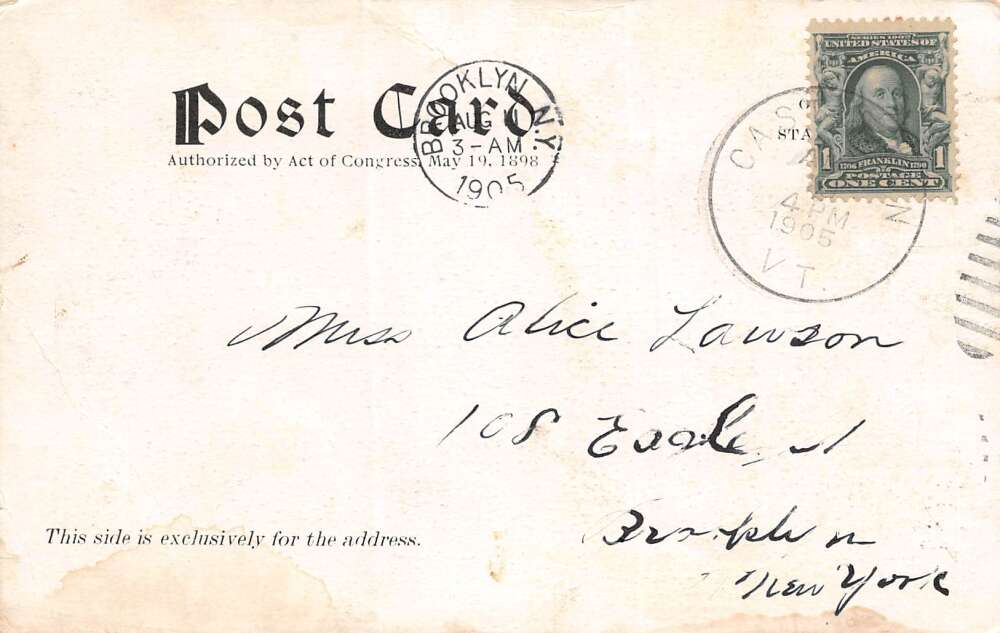 Post Card
Authorized by Act of Congress, May 19, 1898
BROOKLYN, N.Y.
AUG 11
3-AM
1905
CAS N
4 PM
1905
VT.
STA
SERIES 1902
UNITED STATES OF
AMERICA
1706 FRANKLIN 1790
1 POSTAGE 1
ONE CENT
Miss Alice Lawson
108 Eagle St
Brooklyn
New York
This side is exclusively for the address.